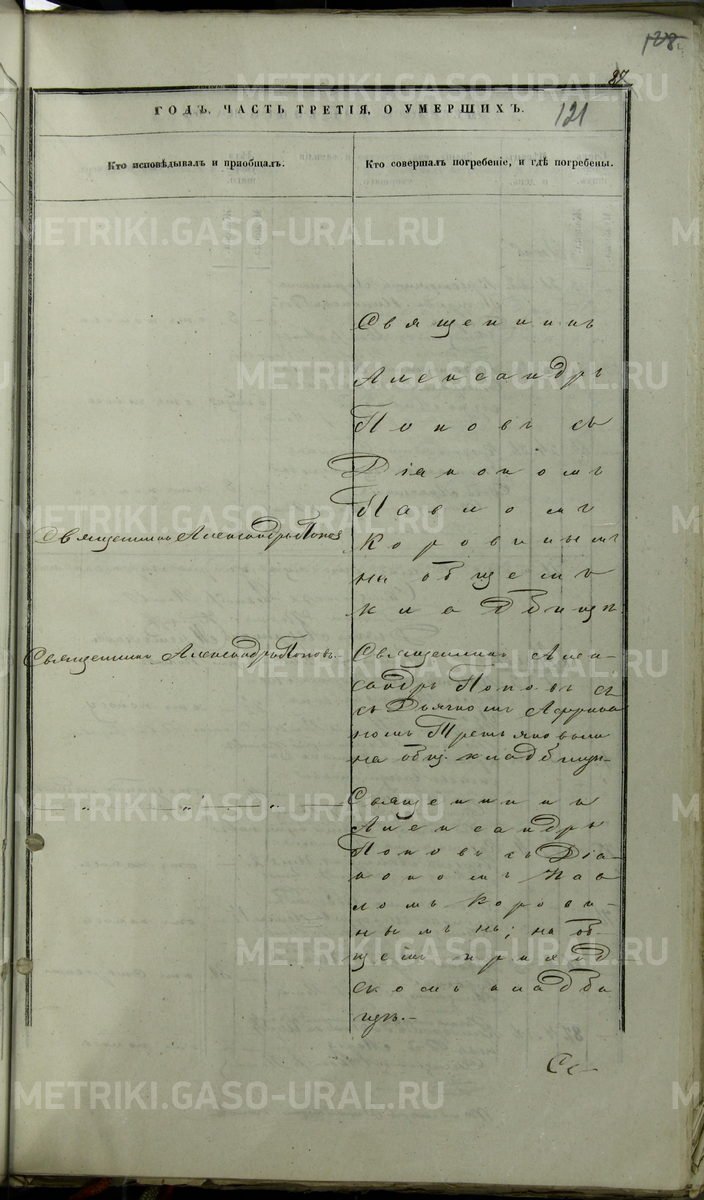 128
87
121
ГОДЪ, ЧАСТЬ ТРЕТІЯ, О УМЕРШИХЪ.
Кто исповѣдывалъ и пріобщалъ.
Кто совершалъ погребеніе, и гдѣ погребены.
Священникъ Александръ Попов
Священникъ Александръ Поповъ
Священникъ
Александръ
Поповъ съ
Діакономъ
Павломъ
Коровинымъ
на общемъ
кладбищѣ.
Священникъ Алек-
сандръ Поповъ съ
съ Дьячкомъ Африка
номъ Третьяковымъ
на общ. кладбищѣ
Священникъ
Александръ
Поповъ съ Діа-
кономъ Пав
ломъ Корови-
нымъ на об-
щемъ приход
скомъ кладби
щѣ.
METRIKI.GASO-URAL.RU